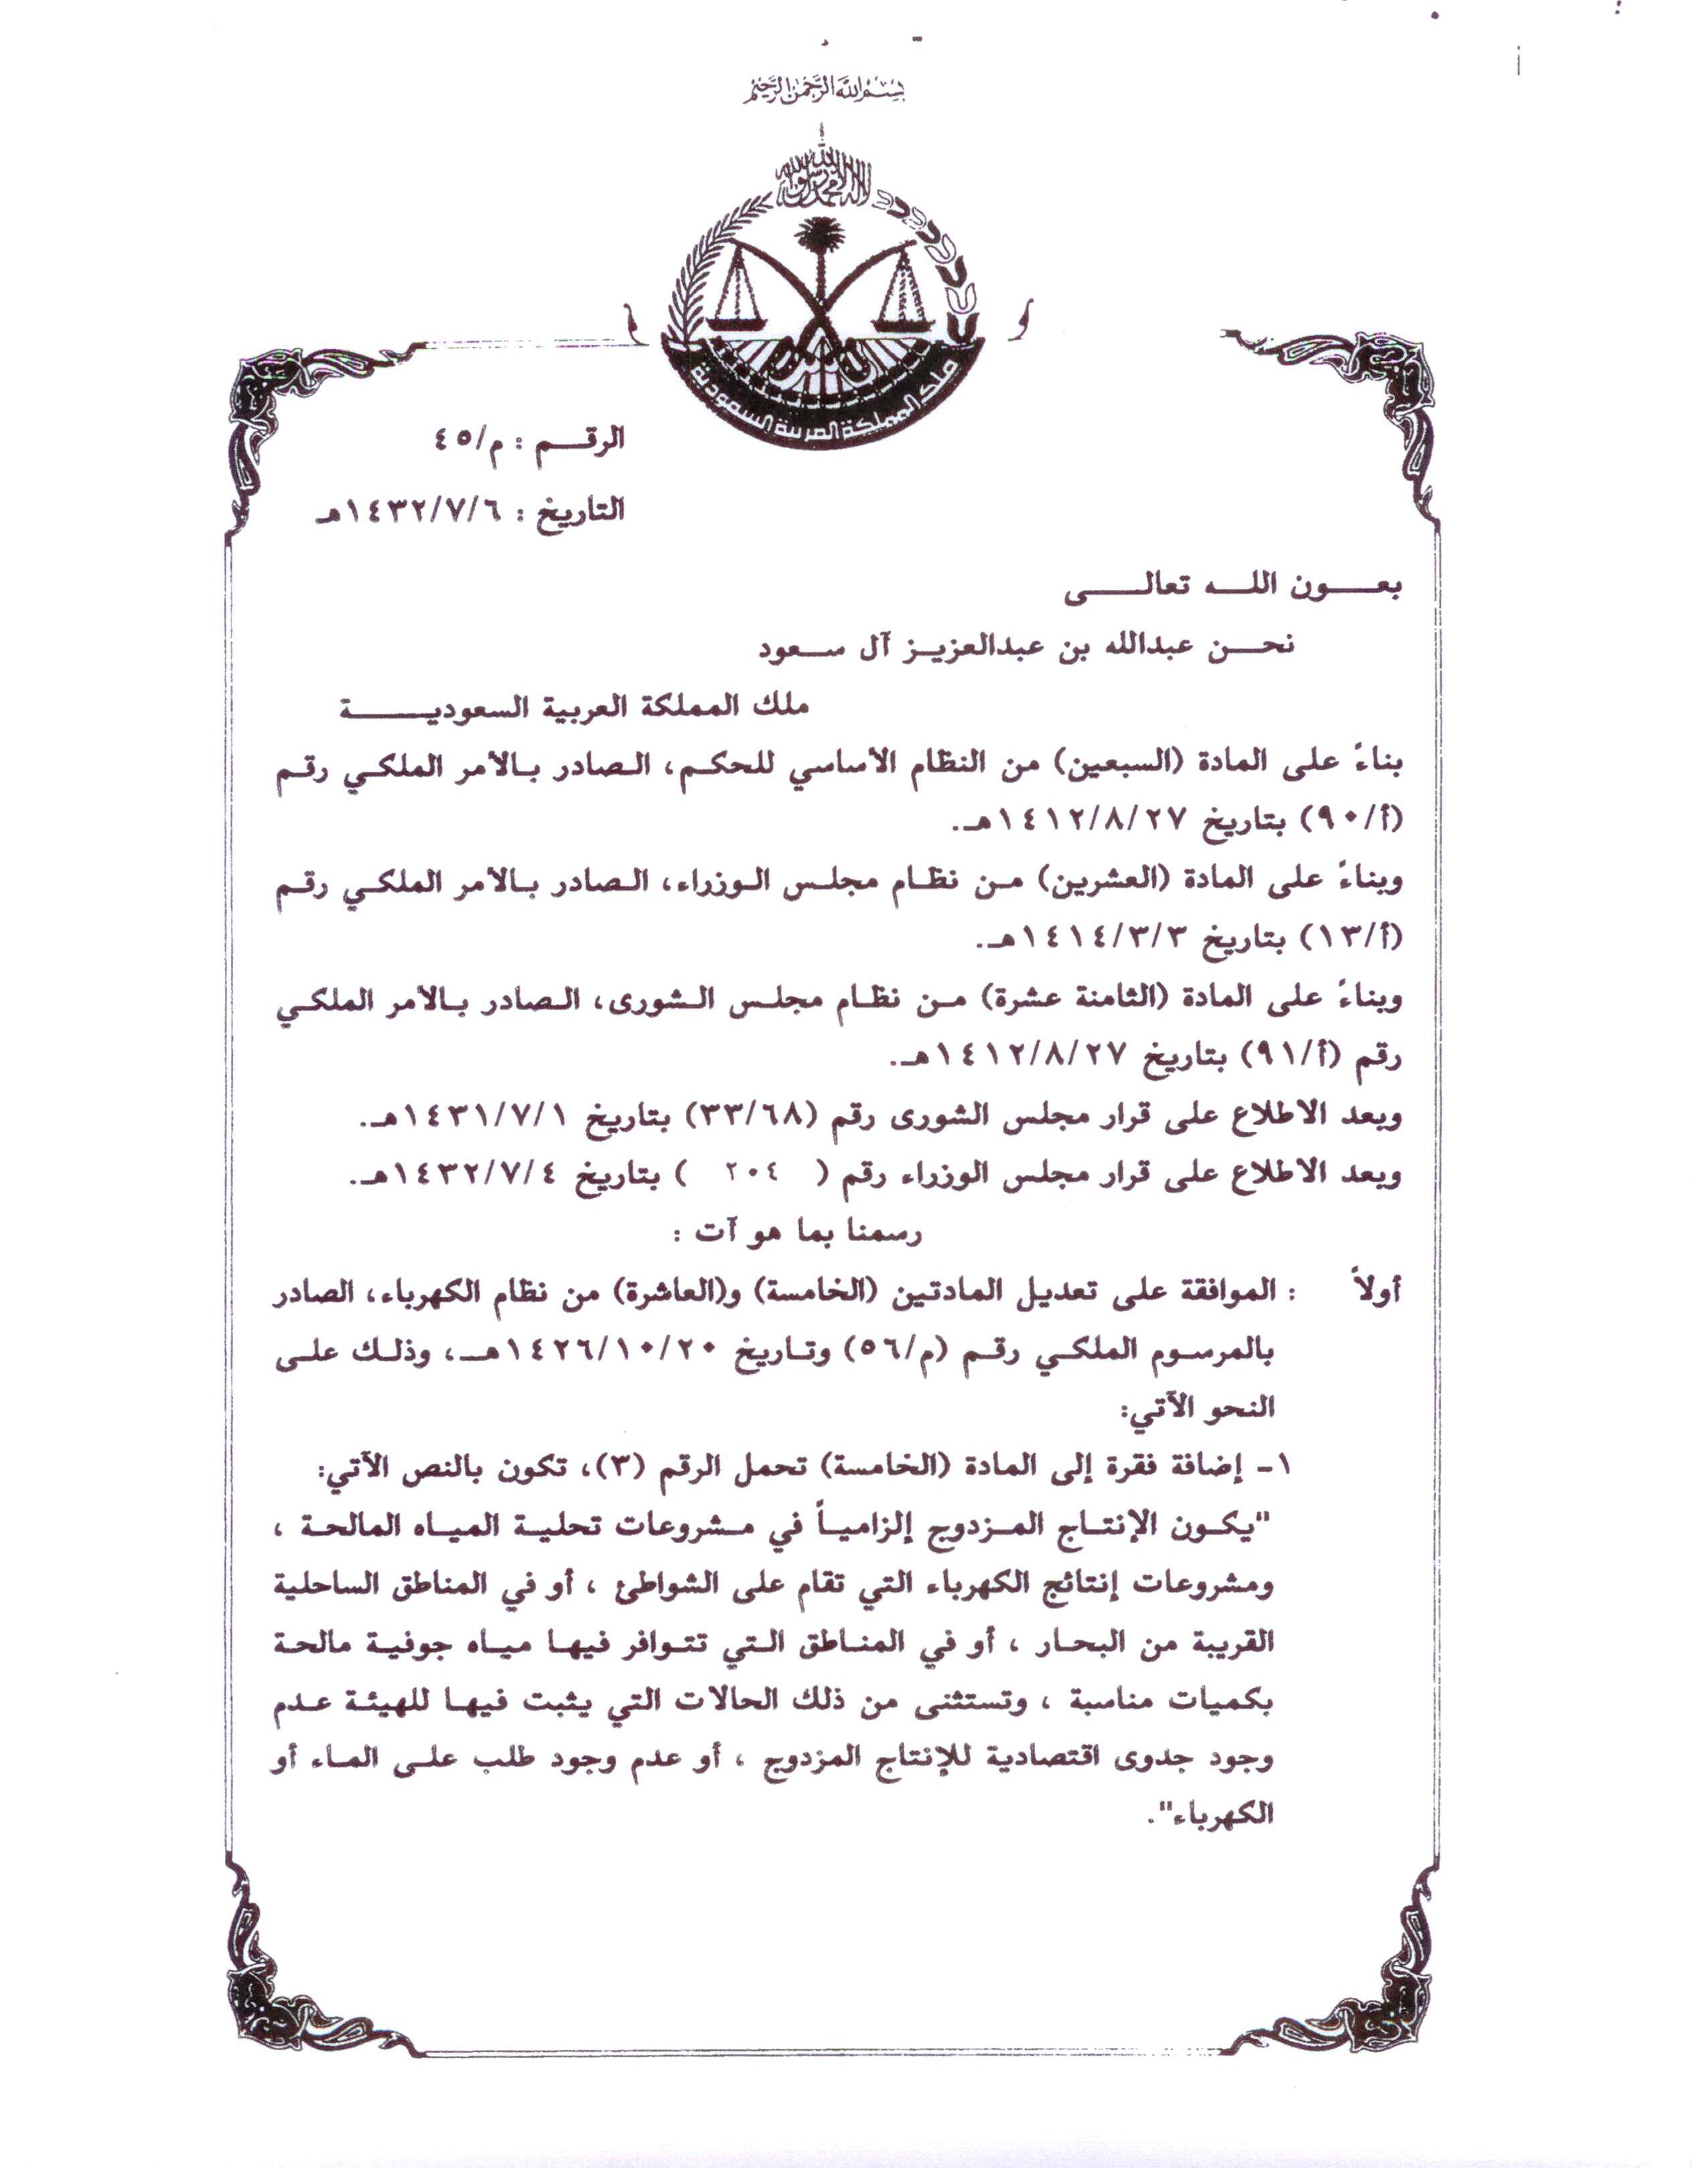 بسم الله الرحمن الرحيم
لا إله إلا الله محمد رسول الله
ملك المملكة العربية السعودية
الرقـــم : م/٤٥
التاريخ : ١٤٣٢/٧/٦هـ
بعـــون اللـــه تعالـــى
نحـــن عبدالله بن عبدالعزيـز آل سـعود
ملك المملكة العربية السعوديـــــة
بناءً على المادة (السبعين) من النظام الأساسي للحكم، الصادر بالأمر الملكي رقم
(أ/٩٠) بتاريخ ١٤١٢/٨/٢٧هـ.
وبناءً على المادة (العشرين) من نظام مجلس الوزراء، الصادر بالأمر الملكي رقم
(أ/١٣) بتاريخ ١٤١٤/٣/٣هـ.
وبناءً على المادة (الثامنة عشرة) من نظام مجلس الشورى، الصادر بالأمر الملكي
رقم (أ/٩١) بتاريخ ١٤١٢/٨/٢٧هـ.
وبعد الاطلاع على قرار مجلس الشورى رقم (٣٣/٦٨) بتاريخ ١٤٣١/٧/١هـ.
وبعد الاطلاع على قرار مجلس الوزراء رقم ( ٢٠٤ ) بتاريخ ١٤٣٢/٧/٤هـ.
رسمنا بما هو آت :
أولاً : الموافقة على تعديل المادتين (الخامسة) و(العاشرة) من نظام الكهرباء، الصادر
بالمرسوم الملكي رقم (م/٥٦) وتاريخ ١٤٢٦/١٠/٢٠هـ، وذلك على
النحو الآتي:
١- إضافة فقرة إلى المادة (الخامسة) تحمل الرقم (٣)، تكون بالنص الآتي:
"يكون الإنتاج المزدوج إلزامياً في مشروعات تحلية المياه المالحة ،
ومشروعات إنتائج الكهرباء التي تقام على الشواطئ ، أو في المناطق الساحلية
القريبة من البحار ، أو في المناطق التي تتوافر فيها مياه جوفية مالحة
بكميات مناسبة ، وتستثنى من ذلك الحالات التي يثبت فيها للهيئة عدم
وجود جدوى اقتصادية للإنتاج المزدوج ، أو عدم وجود طلب على الماء أو
الكهرباء".